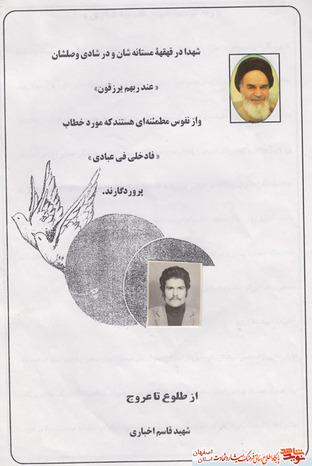 شهدا در قهقههٔ مستانه شان و در شادی وصلشان
«عند ربهم یرزقون»
واز نفوس مطمئنه‌ای هستند که مورد خطاب
«فادخلی فی عبادی»
پروردگارند.
از طلوع تا عروج
شهید قاسم اخباری
اصفهان